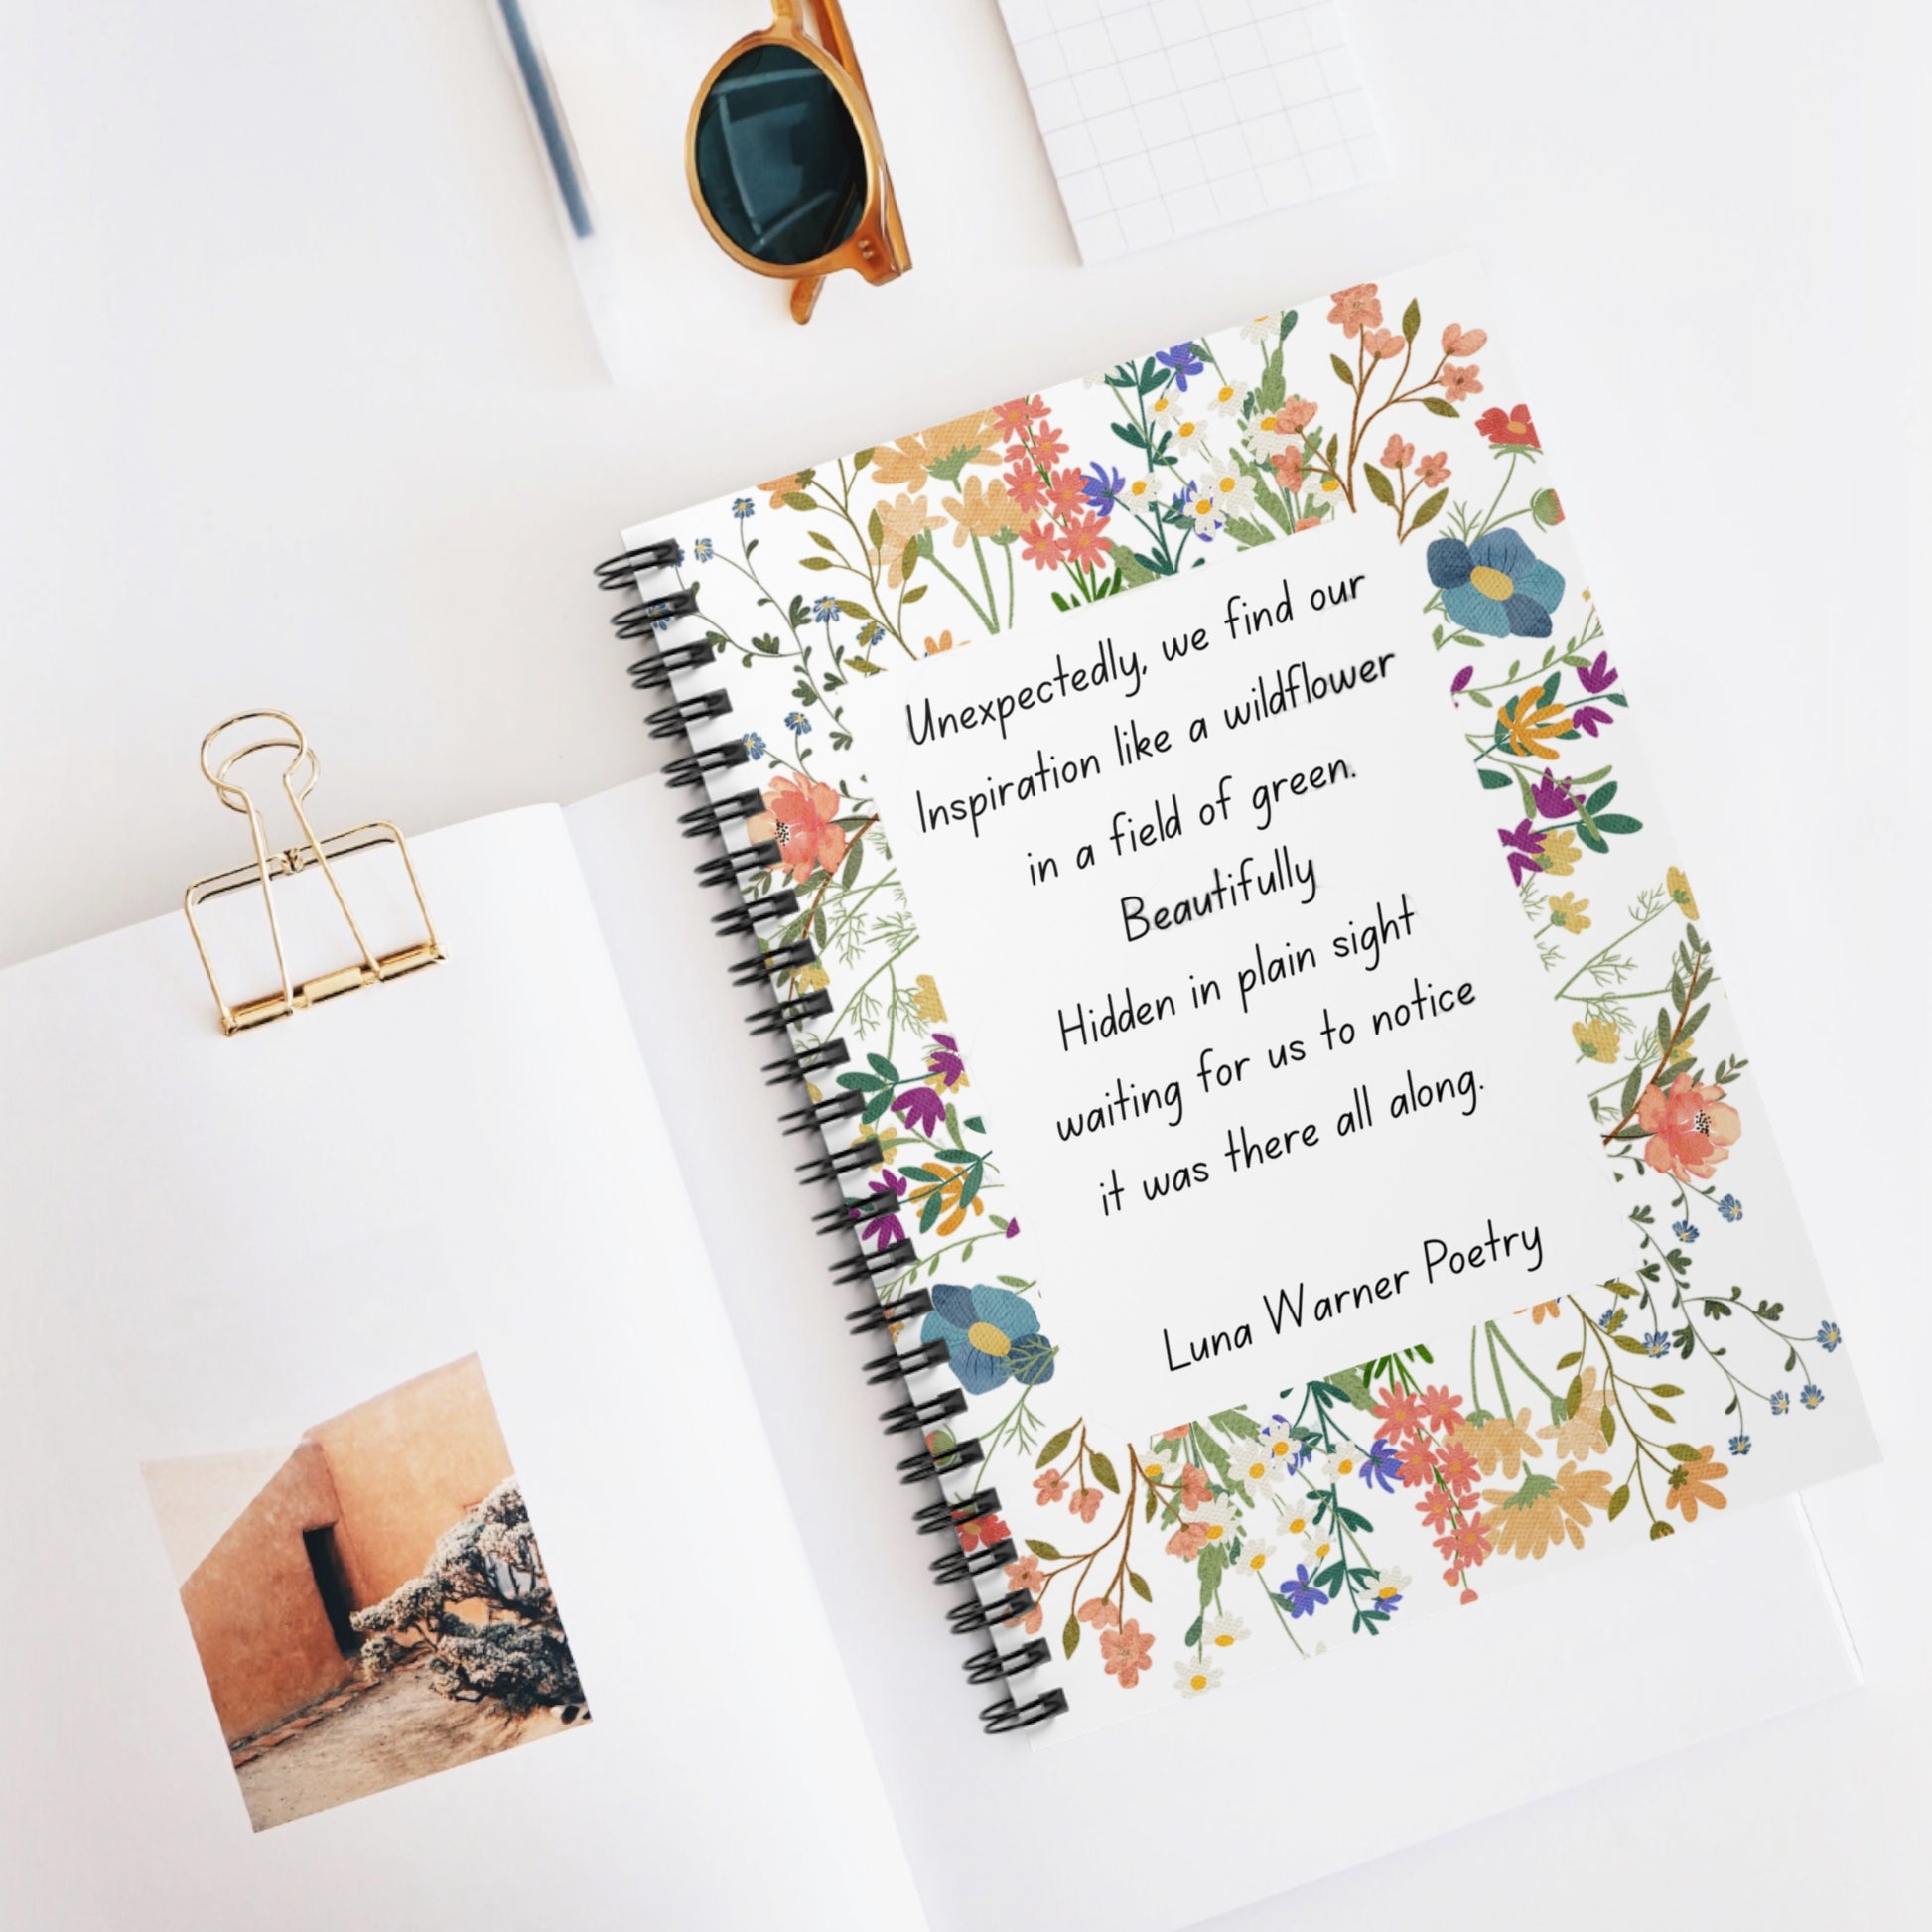 Unexpectedly, we find our
Inspiration like a wildflower
in a field of green.
Beautifully
Hidden in plain sight
waiting for us to notice
it was there all along.
Luna Warner Poetry